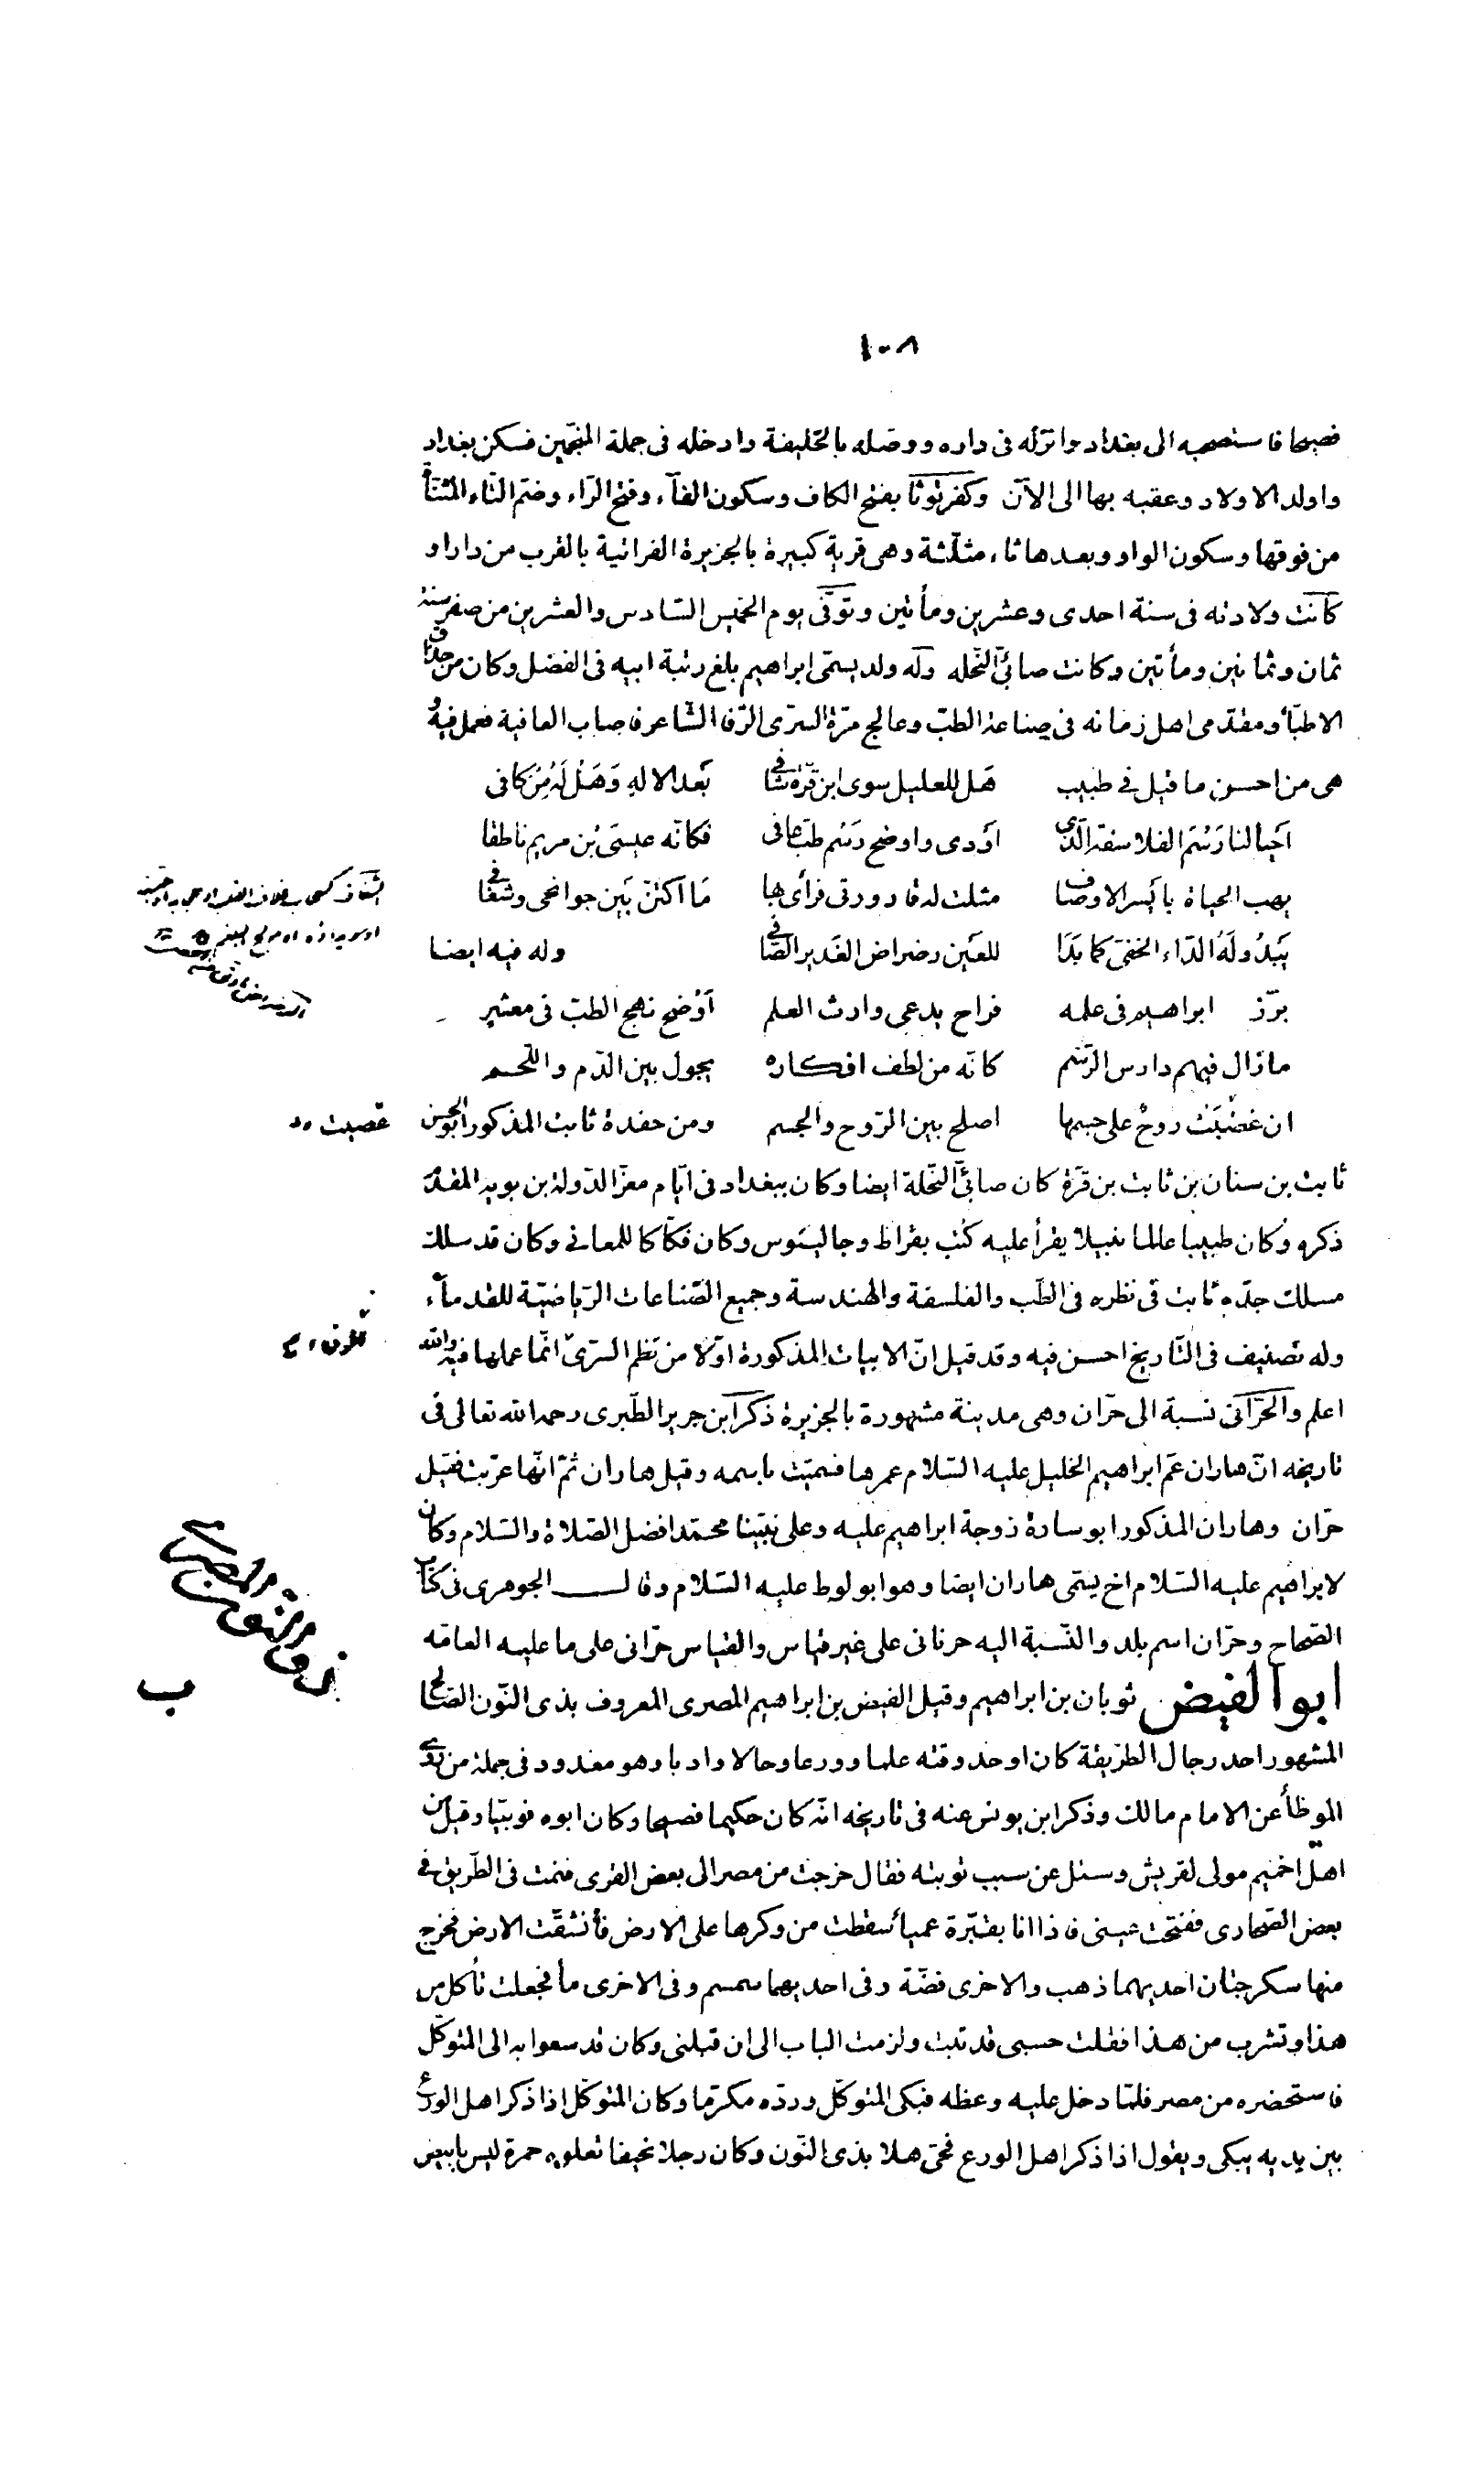 ١٠٨
فصيحا فاستصحبه الى بغداد وانزله فى داره ووصله بالخليفة وادخله فى جملة المنجّمين فسكن بغداد
واولد الاولاد وعقبه بها الى الآن وكفرتوثا بفتح الكاف وسكون الفآء وفتح الرّاء وضمّ التاء المثنّاة
من فوقها وسكون الواو وبعدها ثاء مثلّثة وهى قرية كبيرة بالجزيرة الفراتية بالقرب من دارا و
كانت ولادته فى سنة احدى وعشرين ومأتين وتوفّى يوم الخميس السّادس والعشرين من صفر سنة
ثمان وثمانين ومأتين وكانت صابئّ النّحله وله ولد يسمّى ابراهيم بلغ رتبة ابيه فى الفضل وكان من حذّاق
الاطبّاء ومقدّمى اهل زمانه فى صناعة الطبّ وعالج مرّة السّرى الرّفا الشّاعر فاصاب العافية فعمل فيه و
هى من احسن ما قيل فى طبيب هَل للعليل سوى ابن قرّة شافى بَعد الاله وَهَل لَه من كافى
اَحيا لنا رَسْم الفلاسفة الّذى اَودى واوضح رَسْم طبّ عافى فكانّه عيسَى بْن مريم ناطقا
يهب الحياة بايَسر الاوصاف مثلت له قارورتى فرأى بها مَا اكتنّ بَين جوانحى وشغافى
يَبدُو لَهُ الدّاء الخفىّ كما بَدَا للعَين رضراض الغَدير الصّافى وله فيه ايضا
برّز ابراهيم فى علمه فراح يدعى وارث العلم اَوضح نهج الطبّ فى معشر
مازال فيهم دارس الرّسْم كانّه من لطف افكاره يجول بين الدّم واللّحم
ان غضبَت روحٌ على جسمها اصلح بين الرّوح والجسم ومن حفدة ثابت المذكور ابو الحسن
غصبت
ثابت بن سنان بن ثابت بن قرّة كان صابئّ النّحلة ايضا وكان ببغداد فى ايّام معزّ الدّولة بن بويه المقدّم
ذكره وكان طبيبا عالما نبيلا يقرأ عليه كتب بقراط وجالينوس وكان فكّاكا للمعانى وكان قد سلك
مسلك جدّه ثابت فى نظره فى الطّب والفلسفة والهندسة وجميع الصّناعات الرّياضيّة للقدمآء
وله تصنيف فى التّاريخ احسن فيه وقد قيل انّ الابيات المذكورة اوّلا من نظم السّرىّ انّما عملها فيه والله
اعلم والحرّانى نسبة الى حرّان وهى مدينة مشهورة بالجزيرة ذكر ابن جرير الطّبرى رحمه الله تعالى فى
تاريخه انّ هاران عمّ ابراهيم الخليل عليه السّلام عمرها فسمّيت باسمه وقيل هاران ثمّ انّها عرّبت فقيل
حرّان وهاران المذكور ابو سارة زوجة ابراهيم عليه وعلى نبيّنا محمّد افضل الصّلاة والسّلام وكان
لابراهيم عليه السّلام اخ يسمّى هاران ايضا وهو ابو لوط عليه السّلام وقال الجوهرى فى كتاب
الصّحاح وحرّان اسم بلد والنّسبة اليه حرنانى على غير قياس والقياس حرّانى على ما عليه العامّه
ابو الفيض ثوبان بن ابراهيم وقيل الفيض بن ابراهيم المصرى المعروف بذى النّون الصّالح
ذو النون المصرى
ب
المشهور احد رجال الطّريقة كان اوحد وقته علما وورعا وحالا وادبا وهو معدود فى جملة من روى
الموطّأ عن الامام مالك وذكر ابن يونس عنه فى تاريخه انّه كان حكيما فصيحا وكان ابوه نوبيّا وقيل من
اهل اخميم مولى لقريش وسئل عن سبب توبته فقال خرجت من مصر الى بعض القرى فنمت فى الطّريق فى
بعض الصّحارى ففتحت عينى فاذا انا بقنبّرة عمياء سقطت من وكرها على الارض فأنشقّت الارض فخرج
منها سكرجتان احديهما ذهب والاخرى فضّة وفى احديهما سمسم وفى الاخرى ماء فجعلت تأكل من
هذا وتشرب من هذا فقلت حسبى قد تبت ولزمت الباب الى ان قبلنى وكان قد سعوا به الى المتوكّل
فاستحضره من مصر فلمّا دخل عليه وعظه فبكى المتوكّل وردّه مكرّما وكان المتوكّل اذا ذكر اهل الورع
بين يديه يبكى ويقول اذا ذكر اهل الورع فحىّ هلا بذى النّون وكان رجلا نحيفا تعلوه حمرة ليس بابيض